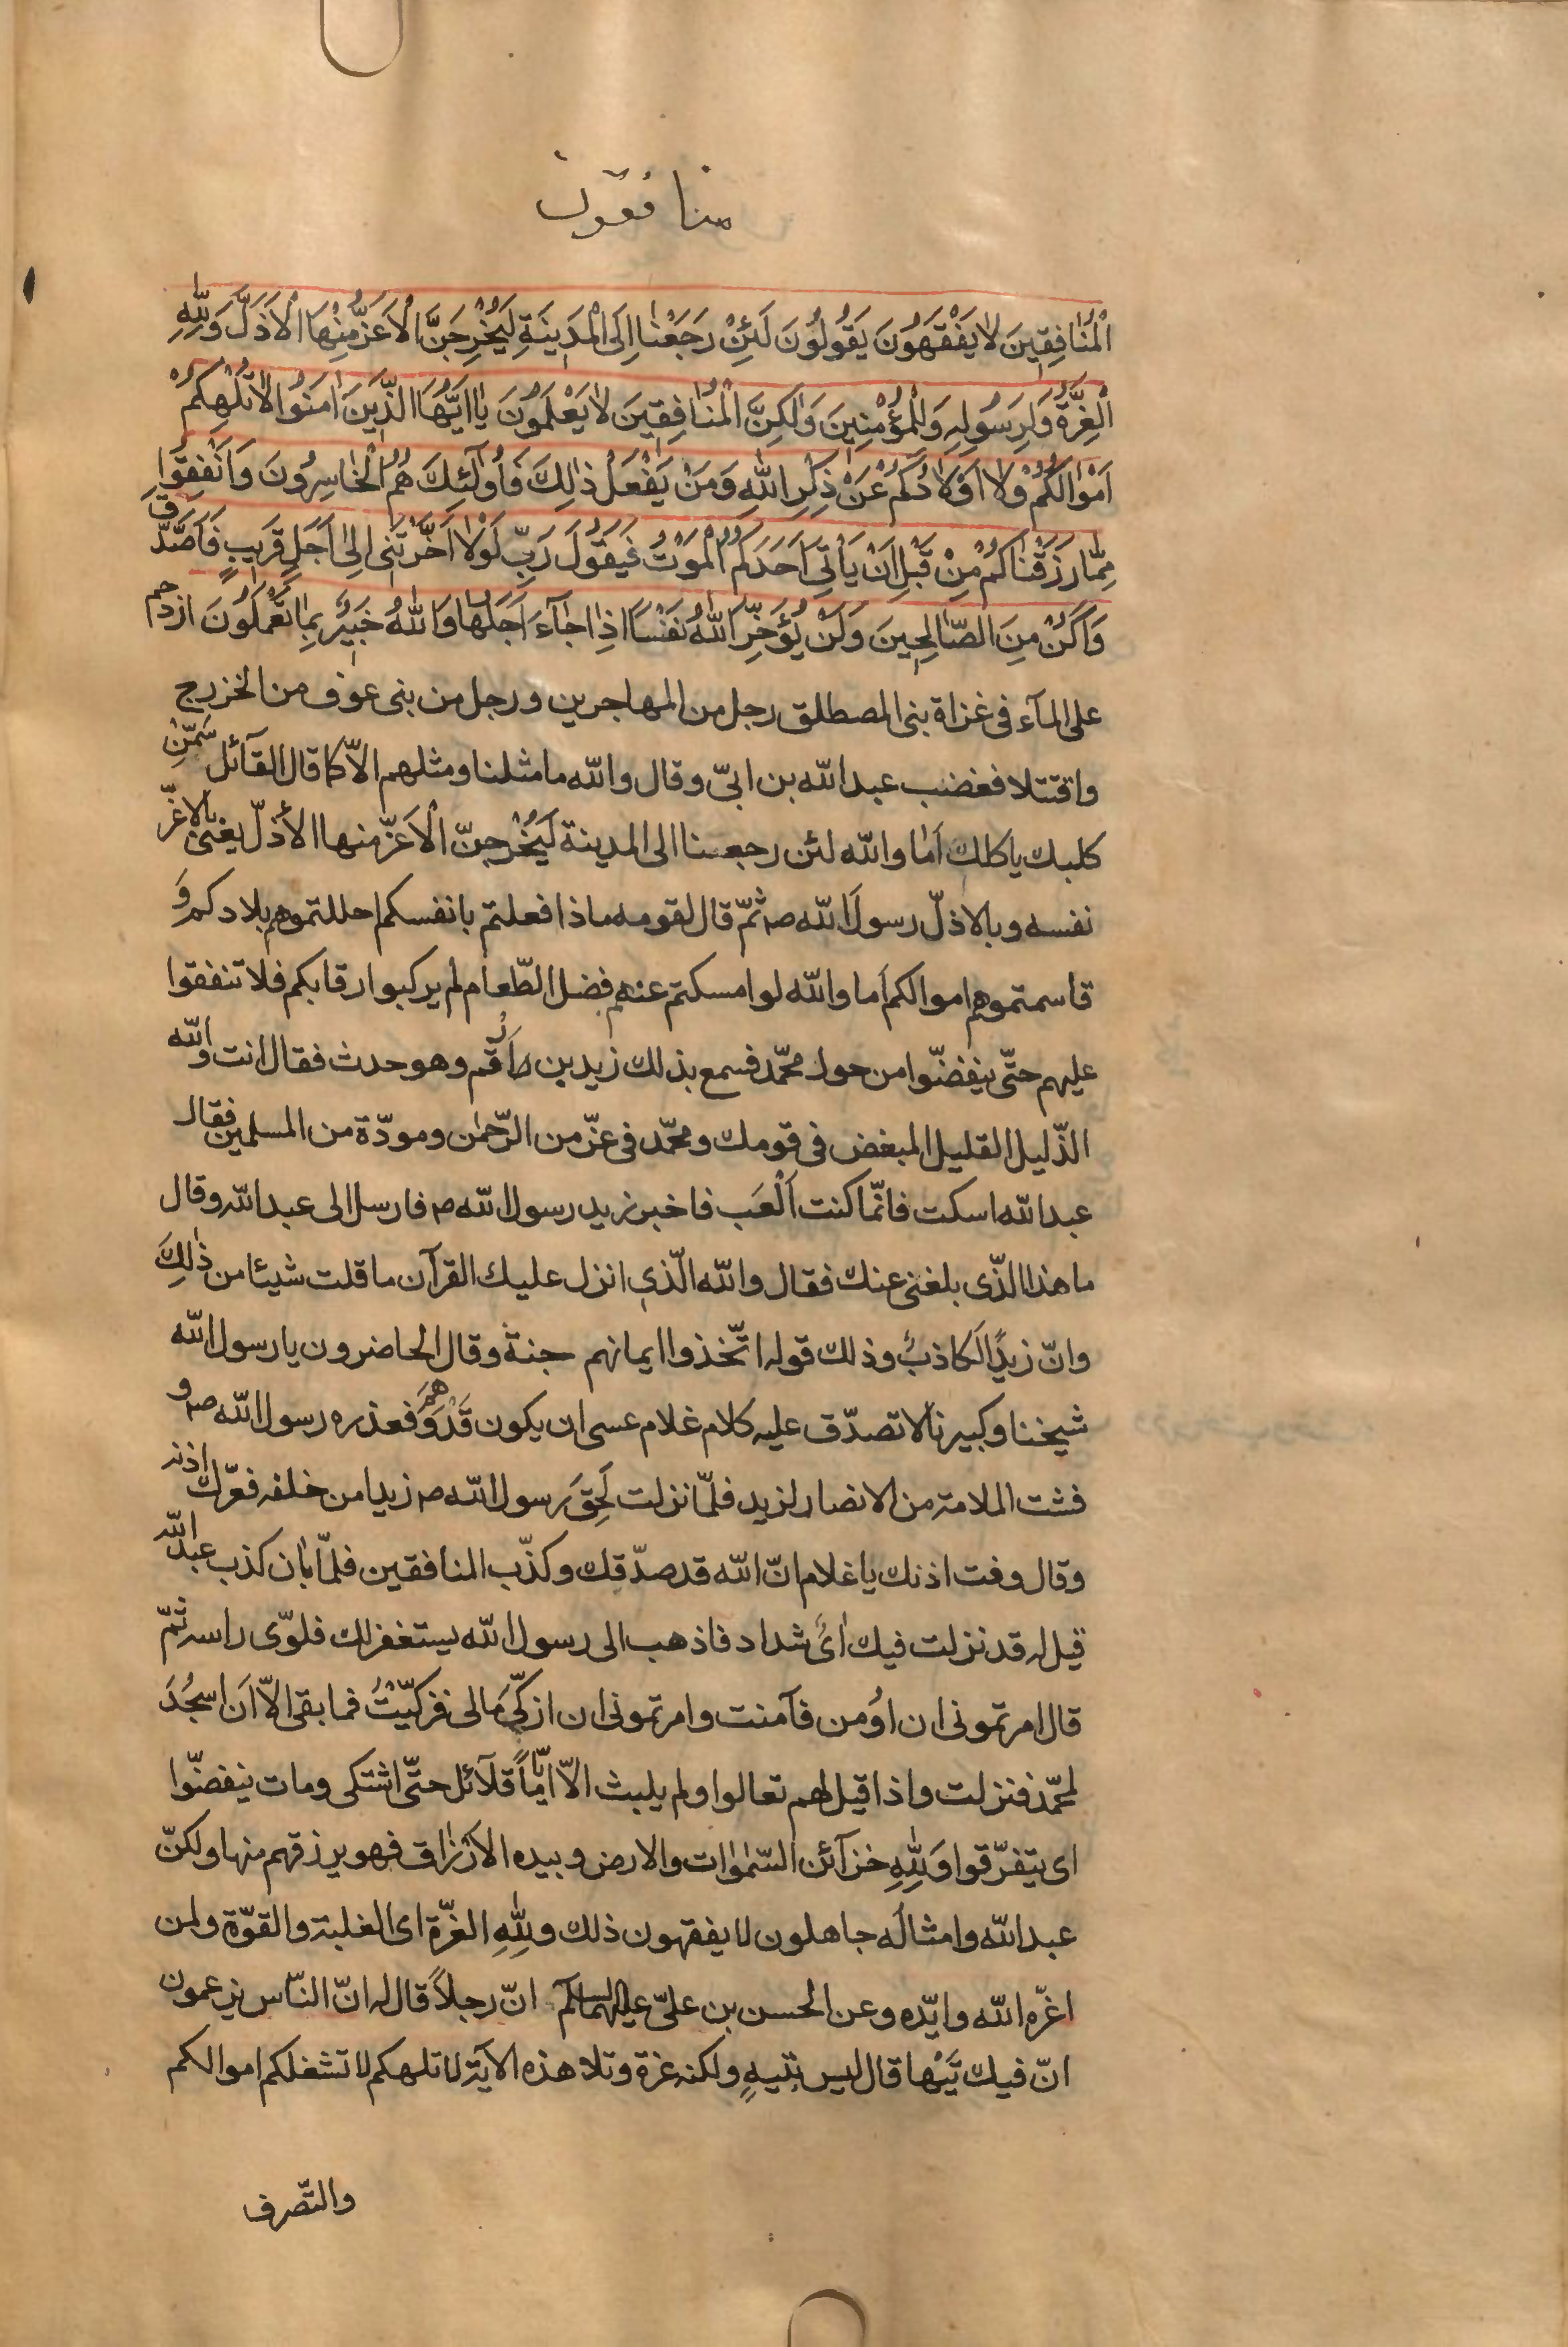 منافقون
الْمُنٰافِقِينَ لٰا يَفْقَهُونَ يَقُولُونَ لَئِنْ رَجَعْنٰا اِلَى الْمَدِينَةِ لَيُخْرِجَنَّ الْاَعَزُّ مِنْهَا الْاَذَلَّ وَلِلّٰهِ
الْعِزَّةُ وَلِرَسُولِهِ وَلِلْمُؤْمِنِينَ وَلٰكِنَّ الْمُنٰافِقِينَ لٰا يَعْلَمُونَ يٰا اَيُّهَا الَّذِينَ اٰمَنُوا لٰا تُلْهِكُمْ
اَمْوٰالُكُمْ وَلٰا اَوْلٰادُكُمْ عَنْ ذِكْرِ اللّٰهِ وَمَنْ يَفْعَلْ ذٰلِكَ فَاُولٰٓئِكَ هُمُ الْخٰاسِرُونَ وَاَنْفِقُوا
مِمّٰا رَزَقْنٰاكُمْ مِنْ قَبْلِ اَنْ يَاْتِيَ اَحَدَكُمُ الْمَوْتُ فَيَقُولَ رَبِّ لَوْلٰا اَخَّرْتَنِي اِلىٰ اَجَلٍ قَرِيبٍ فَاَصَّدَّقَ
وَاَكُنْ مِنَ الصّٰالِحِينَ وَلَنْ يُؤَخِّرَ اللّٰهُ نَفْسًا اِذٰا جٰآءَ اَجَلُهٰا وَاللّٰهُ خَبِيرٌ بِمٰا تَعْمَلُونَ ازدحم
على المآء فى غزاة بنى المصطلق رجل من المهاجرين ورجل من بنى عوف من الخزرج
واقتتلا فغضب عبد الله بن ابىّ وقال والله ما مثلنا ومثلهم الاّ كما قال القآئل سَمِّنْ
كلبك ياكلك اَمٰا والله لئن رجعنا الى المدينة لَيُخْرِجنّ الْاَعَزّ منها الأذلّ يعنى بالاعزّ
نفسه وبالاذلّ رسول الله ص ثمّ قال لقومه ماذا فعلتم بانفسكم احللتموهم بلادكم وَ
قاسمتموهم اموالكم اَما والله لو امسكتم عنهم فضل الطّعام لم يركبوا رقابكم فلا تنفقوا
عليهم حتّى ينفضّوا من حول محمّد فسمع بذلك زيد بن اَرقم وهو حدث فقال انت والله
الذّليل القليل المبغض فى قومك ومحمّد فى عزّ من الرّحمٰن ومودّة من المسلمين فقال
عبد الله اسكت فانّما كنت اَلْعَب فاخبر زيد رسول الله ص فارسل الى عبد الله وقال
ما هذا الذّى بلغنى عنك فقال والله الّذى انزل عليك القرآن ما قلت شيئا من ذٰلِكَ
وانّ زيدًا لَكاذبٌ وذلك قوله اتّخذوا ايمانهم جنة وقال الحاضرون يا رسول الله
شيخنا وكبيرنا لا تصدّق عليه كلام غلام عسى ان يكون قَدْ وَهَمَ فعذره رسول الله ص و
فشت الملامة من الانصار لزيد فلمّا نزلت لَحِقَ رسول الله ص زيدا من خلفه فعرّك اذنه
وقال وفت اذنك يا غلام انّ الله قد صدّقك وكذّب المنافقين فلمّا بٰان كذب عبد الله
قيل له قد نزلت فيك اٰىٌ شداد فاذهب الى رسول الله يستغفر لك فلوّى راسه ثمّ
قال امرتمونى ان اُومن فآمنت وامرتمونى ان ازكّىَ مالى فزكّيْتُ فما بقى الاّ اَن اسجُدَ
لمحمّد فنزلت واذا قيل لهم تعالوا ولم يلبث الاّ ايّامًا قلآئل حتّى اشتكى ومات ينفضّوا
اى يتفرّقوا وَلِلّٰهِ خزآئن السّمٰوٰات والارض وبيده الاَرْزٰاق فهو يرزقهم منها ولكنّ
عبد الله وامثالَه جاهلون لا يفقهون ذلك وللهِ العزّة اى الغلبة والقوّة ولمن
اعزّه الله وايّده وعن الحسن بن علىّ عليهما السلم انّ رجلاً قال له انّ النّاس يزعمون
انّ فيك تَيْها قال ليس بتيهٍ ولكنه عزة وتلا هذه الآية لا تلهكم لا تشغلكم اموالكم
والتّصرف